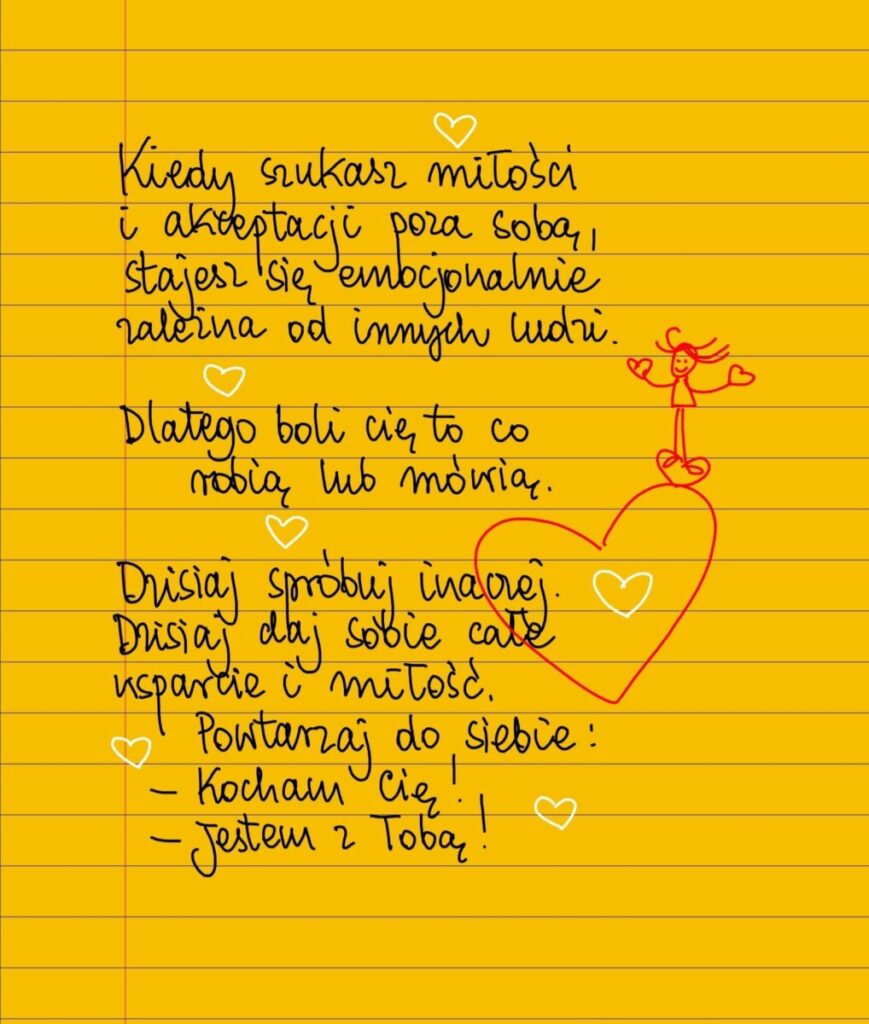 Kiedy szukasz miłości
i akceptacji poza sobą,
stajesz się emocjonalnie
zależna od innych ludzi.
Dlatego boli cię to co
robią lub mówią.
Dzisiaj spróbuj inaczej.
Dzisiaj daj sobie całe
wsparcie i miłość.
Powtarzaj do siebie:
– Kocham Cię!
– Jestem z Tobą!